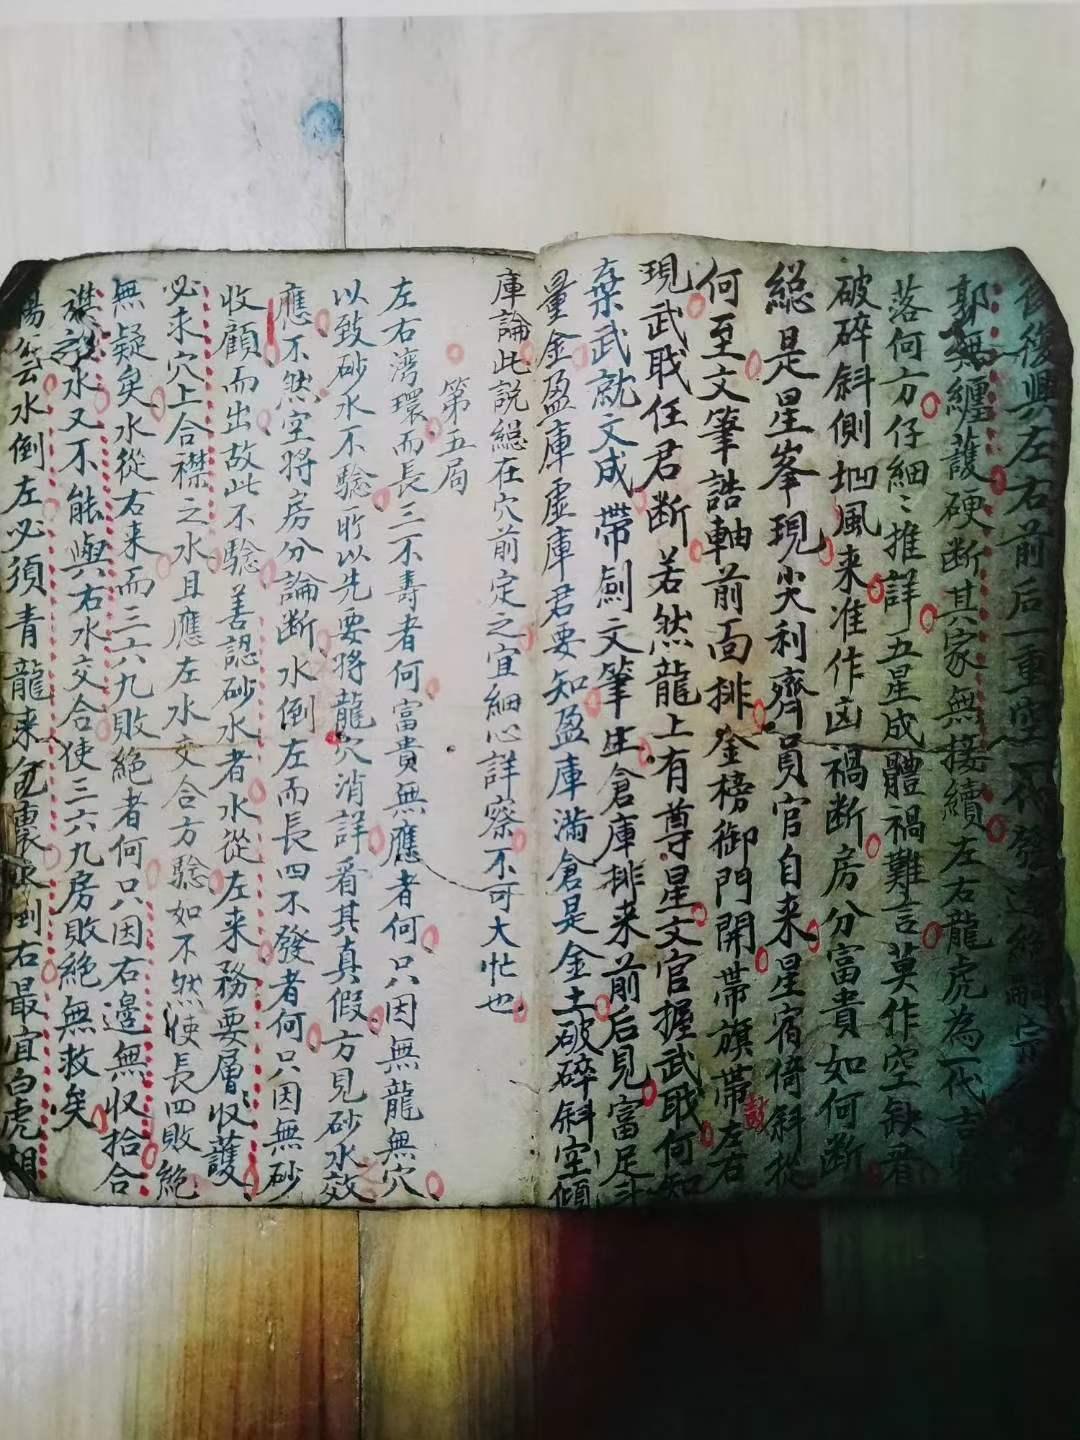 後復興左右前后一重空一代發達絕
郭無纏護硬断其家無接續左右龍虎為一代吉
落何方仔細〻推詳五星成體禍難言莫作空缺看
破碎斜側坳風来准作凶禍断房分富貴如何断
総是星峯現尖利齊員官自来星宿倚斜従
何至文筆誥軸前面排金榜御門開帶旗帶左右
現武戢任君断若然龍上有尊星文官握武戢何知
棄武就文成帶劍文筆生倉庫排来前后見富足計
量金盈庫虛庫君要知盈庫滿倉是金土破碎斜空傾
庫論此説総在穴前定之宜細心詳察不可大忙也
第五局
左右湾環而長三不壽者何富貴無應者何只因無龍無穴
以致砂水不驗所以先要将龍穴消詳看其真假方見砂水效
應不然空将房分論断水倒左而長四不發者何只因無砂
收顧而出故此不驗善認砂水者水從左来務要層層收護
必求穴上合襟之水且應左水交合方驗如不然使長四敗絕
無疑矣水從右来而三六九敗絕者何只因右邊無收拾合
襟之水又不能與右水交合使三六九房敗絕無救矣
楊公云水倒左必須青龍来包裹水倒右最宜白虎